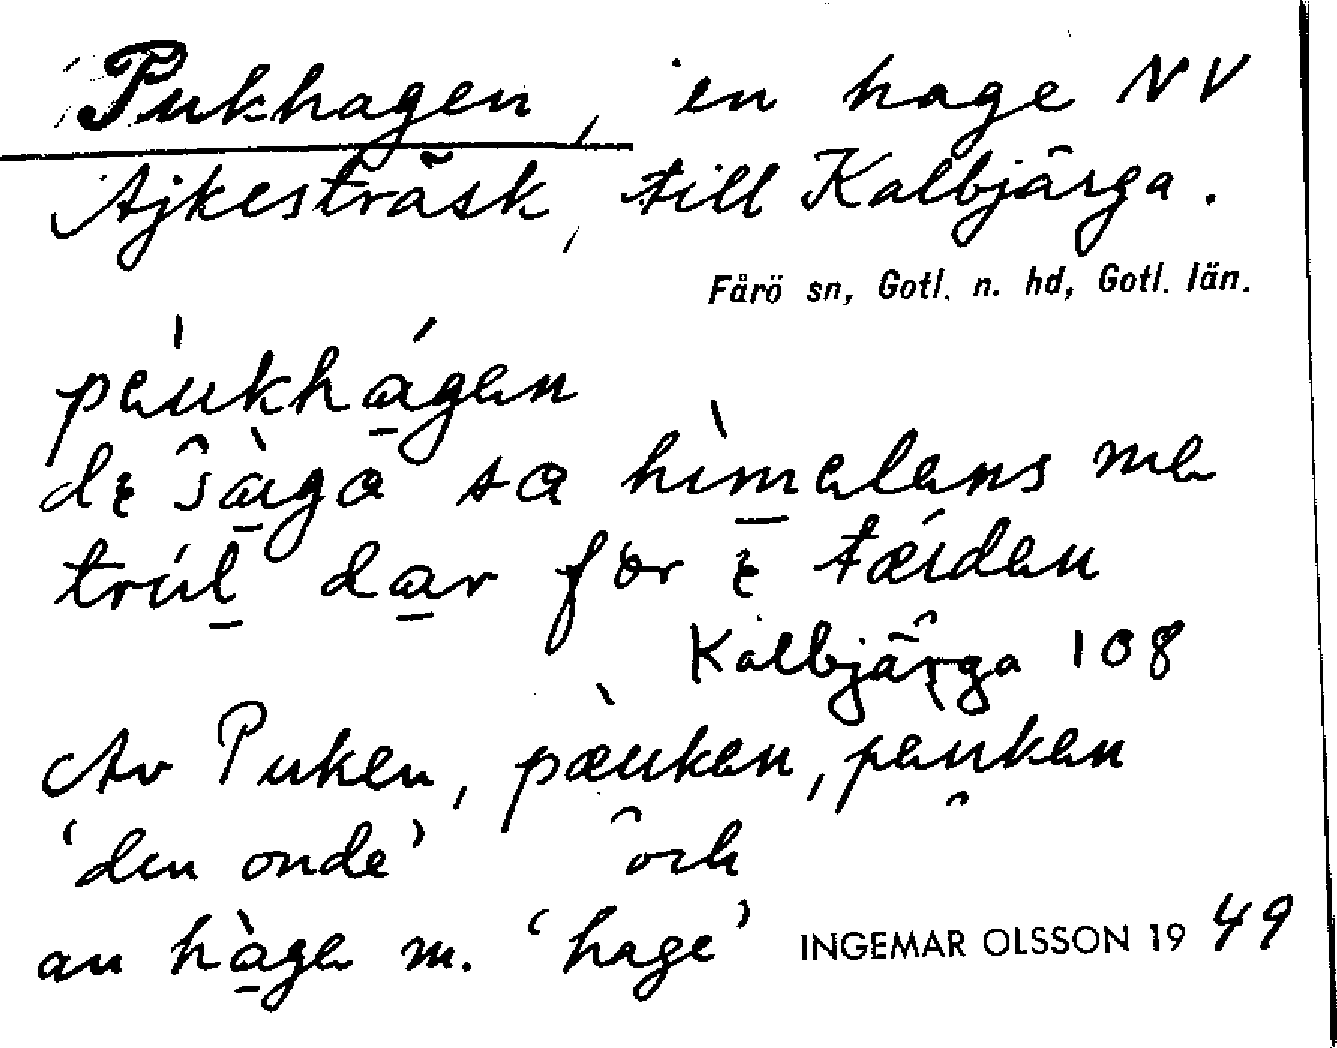 Pukhagen, en hage NV
Ajkesträsk, till Kalbjärga.
Fårö sn, Gotl. n. hd, Gotl. län.
pèukhágen
sa himelens me
trúl dar för tæiden
Kalbjärga 108
Av Puken, pæuken, peuken
'den onde' och
an hàge m. 'hage' INGEMAR OLSSON 1949